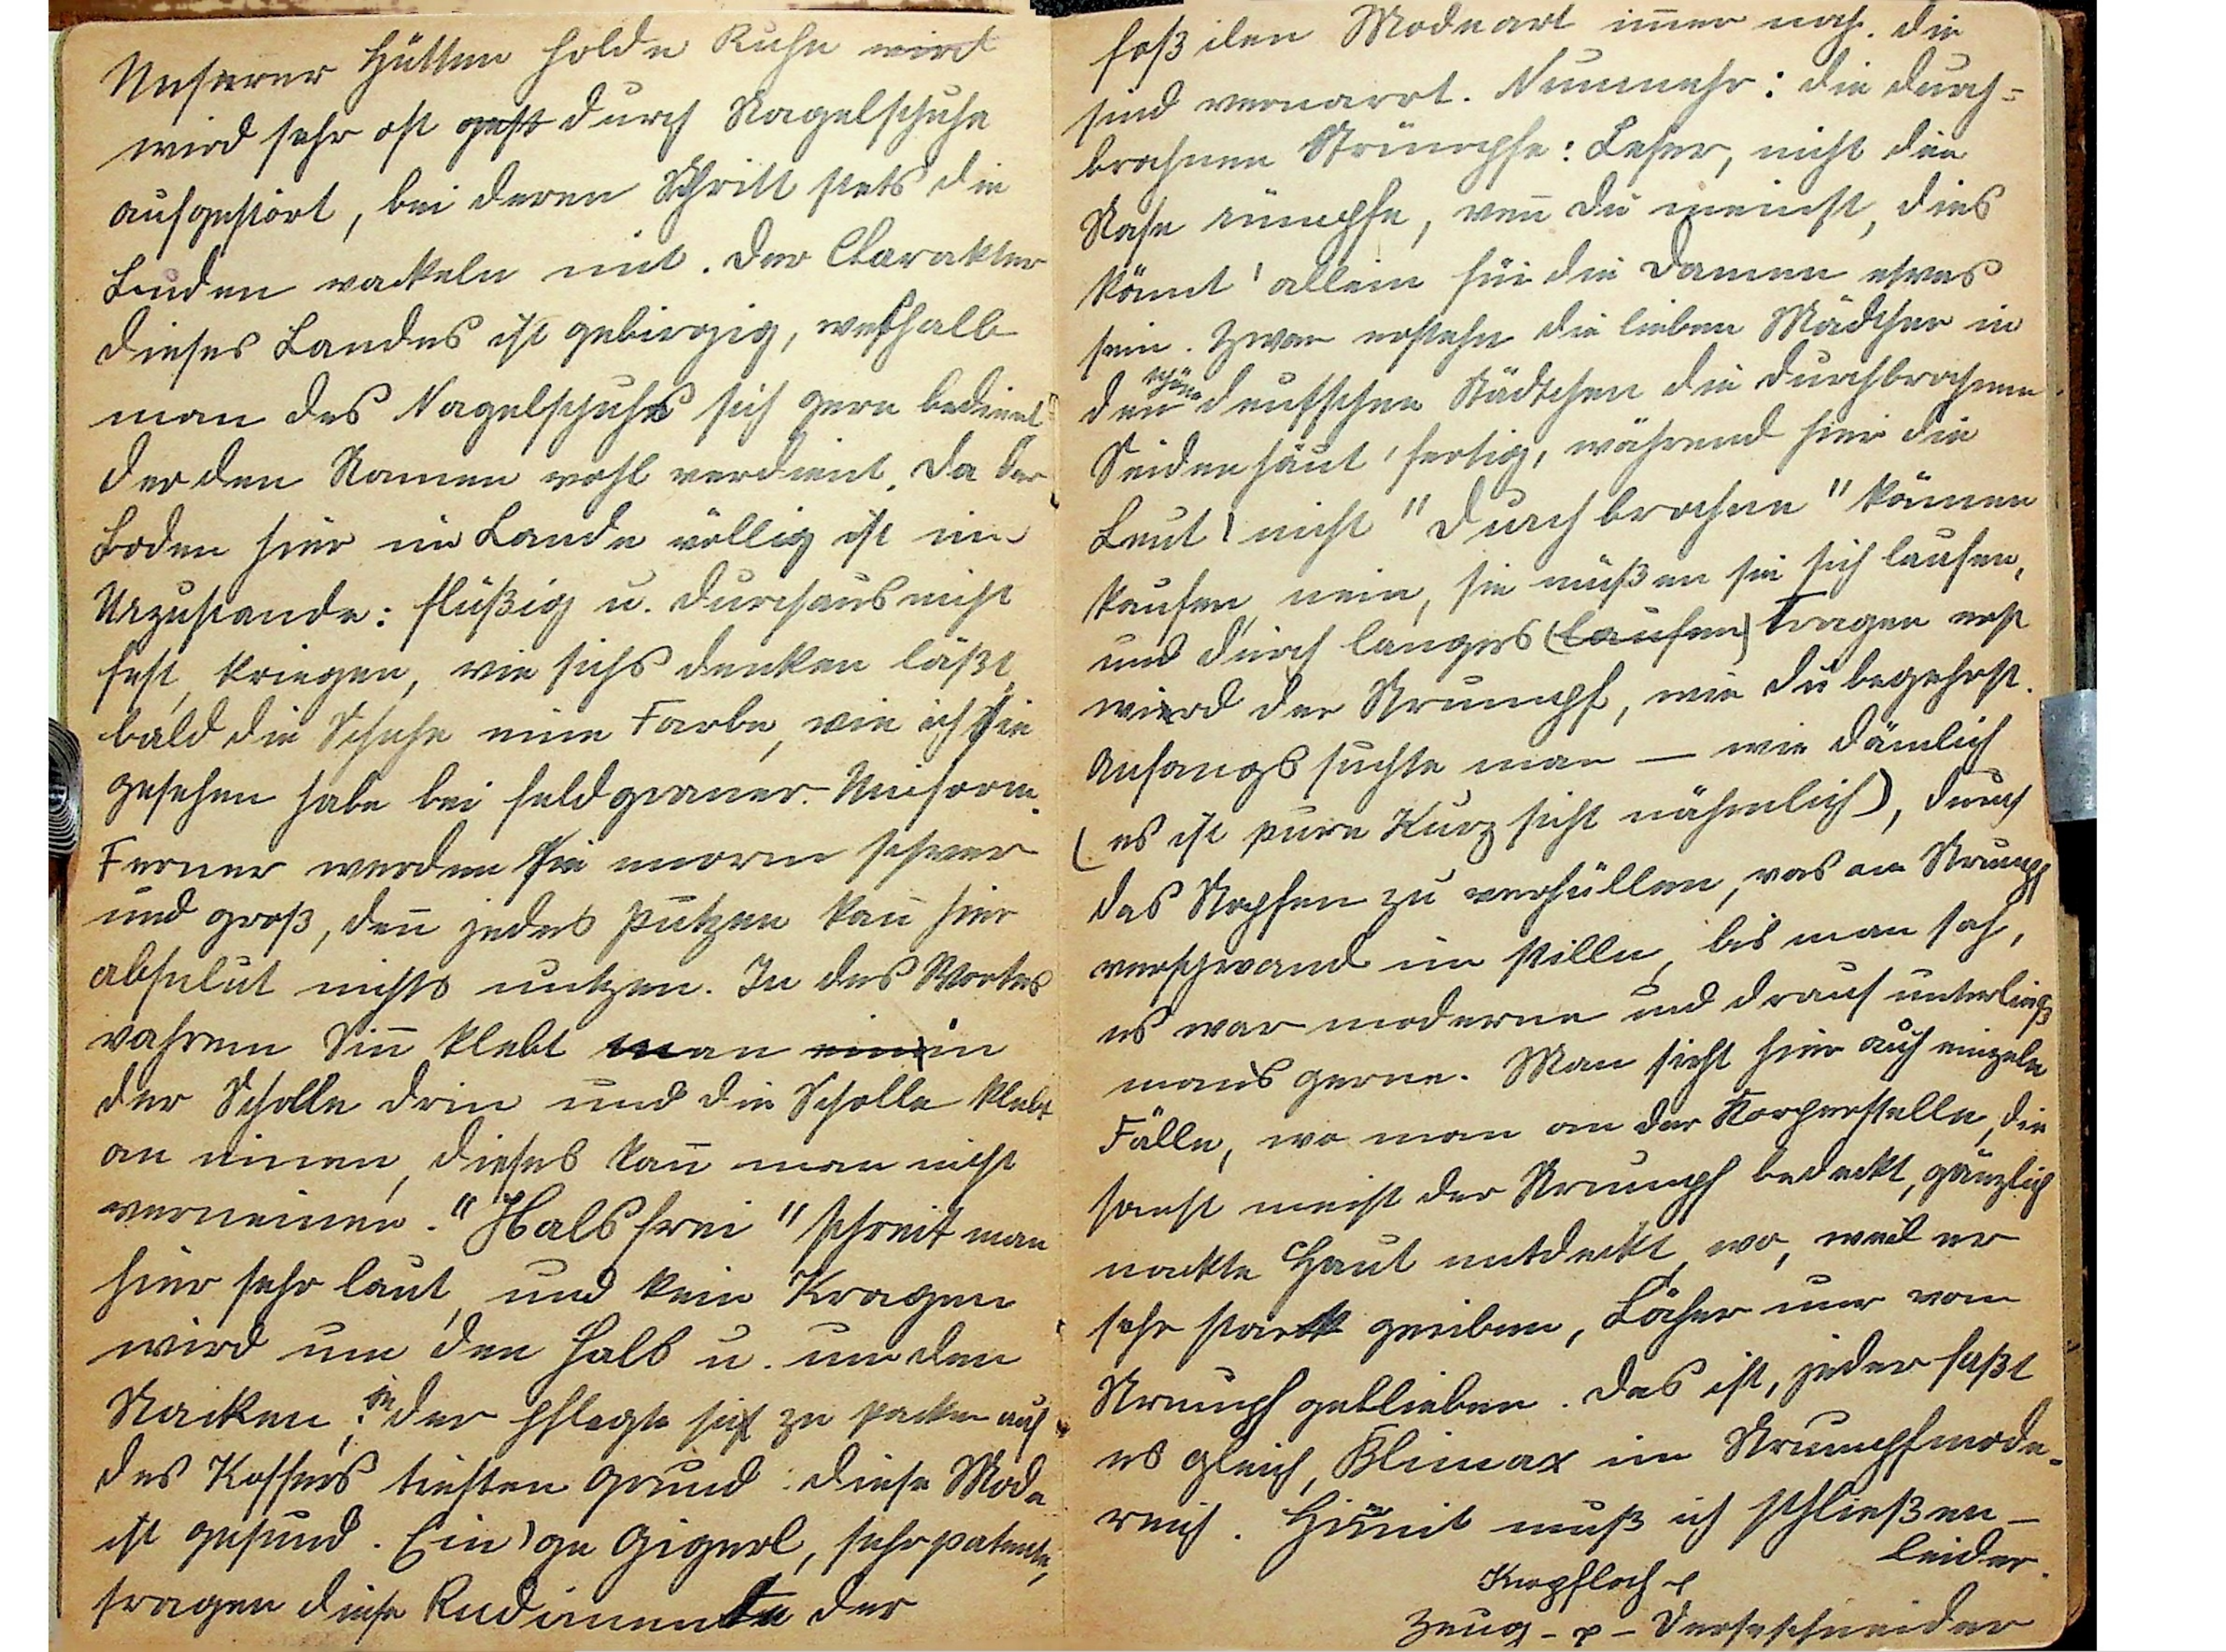 Unserer Hütten holde Ruhe wird
wird sehr oft gest durch Nagelschuhe
aufgestört, bei deren Schritt stets die
Buden wackeln mit. Der Charakter
dieses Landes ist gebirgig, weshalb
man des Nagelschuhs sich gern bedient
der den Namen wohl verdient. Da der
Boden hier im Lande völlig ist im
Urzustande: flüßig u. durchaus nicht
fest, kriegen, wie sichs denken läßt,
bald die Schuhe eine Farbe, wie ich sie
gesehen habe bei feldgrauer Uniform.
Ferner werden sie enorm schwer
und groß, deñ jedes putzen kañ hier
absolut nichts nutzen. In des Wortes
wahrem Siñ klebt man ein in
der Scholle drin und die Scholle klebt
an einen, dieses kañ man nicht
verneinen. "Hals frei" schreit man
hier sehr laut, und kein Kragen
wird um den Hals u. um den
Nacken, jeder pflegte sich zu packen auf
des Koffers tiefsten Grund. Diese Mode
ist gesund. Ein'ge Gigerl, sehr patente,
tragen diese Rudimente der
Modeart im̃er noch. Die
sind vernarrt. Nunmehr: die durch=
brochnen Strümpfe: Leser, nicht die
Nase rümpfe, weñ du meinst, dies
könnt' allein für die Damen etwas
sein. Zwar erstehn die lieben Mädchen in
den schönen deutschen Städtchen die durchbrochnen
Seidenhäut' fertig, während hier die
Leut' nicht "durchbrochne" können
kaufen, nein, sie müßen sie sich laufen,
und durch langes (laufen) tragen erst
wird der Strumpf, wie du begehrst.
Anfangs suchte man — wie dämlich
(es ist pure Kurzsicht nähmlich), durch
das Stopfen zu verhüllen, was am Strumpf
verschwand im stillen, bis man sah,
es war moderne und drauf unterließ
mans gerne. Man sieht hier auch einzeln
Fälle, wo man an der Körperstelle, die
sonst meist der Strumpf bedeckt, gänzlich
nackte Haut entdeckt, wo, weil er
sehr stark gerieben, Löcher nur vom
Strumpf geblieben. Das ist, jeder faßt
es gleich, Klimax im Strumpfmode-
reich. Hiermit muß ich schließen –
leider.
Knopfloch -
Zeug - - Verseschneider